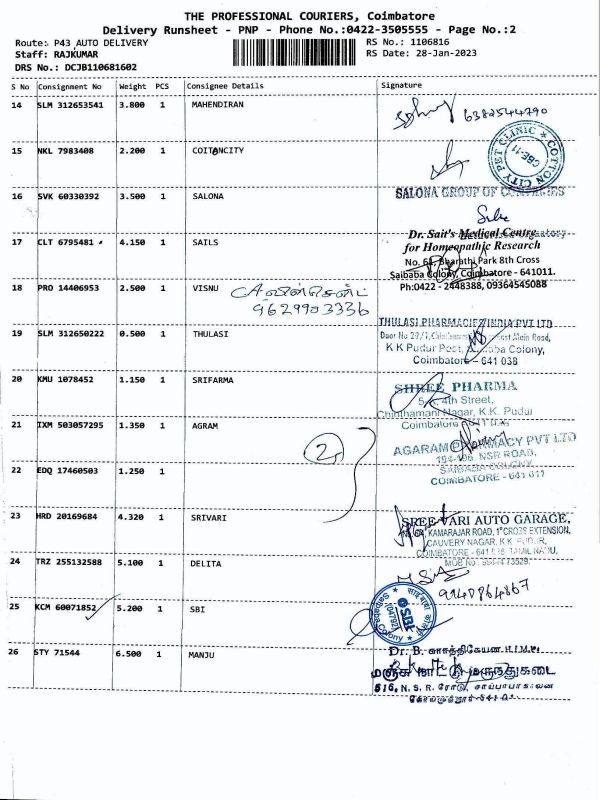 THE PROFESSIONAL COURIERS, Coimbatore
Delivery Runsheet - PNP - Phone No.:0422-3505555 - Page No.:2
Route: P43 AUTO DELIVERY
RS No.: 1106816
Staff: RAJKUMAR
RS Date: 28-Jan-2023
DRS No.: DCJB110681602
S No Consignment No Weight PCS Consignee Details Signature
14 SLM 312653541 3.800 1 MAHENDIRAN 6382544790
15 NKL 7983408 2.200 1 COITONCITY
COTTON CITY PET CLINIC CBE-11
16 SVK 60330392 3.500 1 SALONA SALONA GROUP OF COMPANIES
17 CLT 6795481 4.150 1 SAILS
Dr. Sait's Medical Centre
for Homeopathic Research
No. 61, Bharathi Park 8th Cross
Saibaba Colony, Coimbatore - 641011.
Ph:0422 - 2448388, 09364545088
18 PRO 14406953 2.500 1 VISNU
9629903336
19 SLM 312650222 0.500 1 THULASI
THULASI PHARMACIEZ INDIA PVT LTD
East Main Road,
K K Pudur Post, Saibaba Colony,
Coimbatore - 641 038
20 KMU 1078452 1.150 1 SRIFARMA
SHREE PHARMA
4th Street,
Chinthamani Nagar, K.K. Pudur
Coimbatore
21 IXM 503057295 1.350 1 AGRAM
AGARAM PHARMACY PVT LTD
194-196, NSR ROAD,
SAIBABA COLONY,
COIMBATORE - 641 011
22 EDQ 17460503 1.250 1
23 HRD 20169684 4.320 1 SRIVARI
SREE VARI AUTO GARAGE,
KAMARAJAR ROAD, 1st CROSS EXTENSION,
CAUVERY NAGAR, K.K. PUDUR,
COIMBATORE - 641 038 TAMIL NADU,
24 TRZ 255132588 5.100 1 DELITA
9140864867
25 KCM 60071852 5.200 1 SBI
SBI Saibaba Colony
26 STY 71544 6.500 1 MANJU
Dr. B. கார்த்திகேயன்
மஞ்சு நாட்டு மருந்துகடை
516, N. S. R. ரோடு, சாய்பாபா காலனி